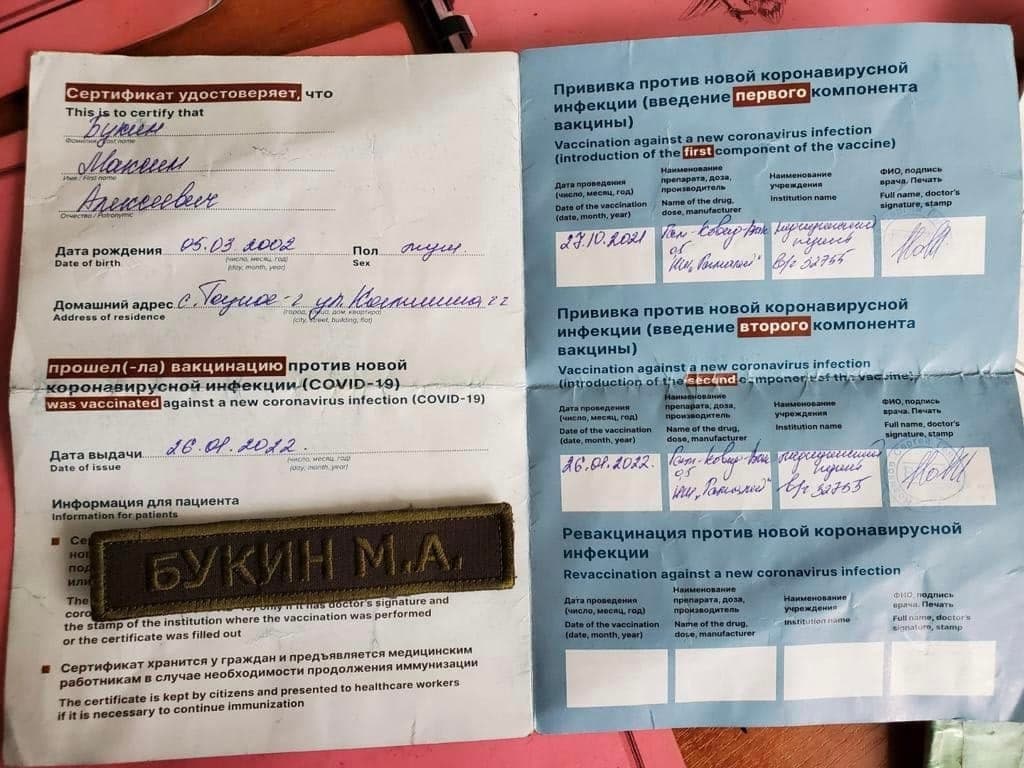 Сертификат удостоверяет, что
This is to certify that
Букин
Фамилия / Last name
Максим
Имя / First name
Алексеевич
Отчество / Patronymic
Дата рождения 05.03.2002 Пол муж.
Date of birth (число, месяц, год) Sex
(day, month, year)
Домашний адрес с. ул.
Address of residence (город, улица, дом, квартира)
(city, street, building, flat)
прошел(-ла) вакцинацию против новой
коронавирусной инфекции (COVID-19)
was vaccinated against a new coronavirus infection (COVID-19)
Дата выдачи 26.01.2022.
Date of issue (число, месяц, год)
(day, month, year)
Информация для пациента
Information for patients
Се
нов
под
или
БУКИН М.А.
The
coro only if it has doctor's signature and
the stamp of the institution where the vaccination was performed
or the certificate was filled out
Сертификат хранится у граждан и предъявляется медицинским
работникам в случае необходимости продолжения иммунизации
The certificate is kept by citizens and presented to healthcare workers
if it is necessary to continue immunization
Прививка против новой коронавирусной
инфекции (введение первого компонента
вакцины)
Vaccination against a new coronavirus infection
(introduction of the first component of the vaccine)
Дата проведения (число, месяц, год)
Date of the vaccination (date, month, year)
Наименование препарата, доза, производитель
Name of the drug, dose, manufacturer
Наименование учреждения
Institution name
ФИО, подпись врача. Печать
Full name, doctor's signature, stamp
27.10.2021
Гам-Ковид-Вак
0,5
медицинский
в/ч 32755
Прививка против новой коронавирусной
инфекции (введение второго компонента
вакцины)
Vaccination against a new coronavirus infection
(introduction of the second component of the vaccine)
Дата проведения (число, месяц, год)
Date of the vaccination (date, month, year)
Наименование препарата, доза, производитель
Name of the drug, dose, manufacturer
Наименование учреждения
Institution name
ФИО, подпись врача. Печать
Full name, doctor's signature, stamp
26.01.2022.
Гам-Ковид-Вак
0,5
медицинский
в/ч 32755
Ревакцинация против новой коронавирусной
инфекции
Revaccination against a new coronavirus infection
Дата проведения (число, месяц, год)
Date of the vaccination (date, month, year)
Наименование препарата, доза, производитель
Name of the drug, dose, manufacturer
Наименование учреждения
Institution name
ФИО, подпись врача. Печать
Full name, doctor's signature, stamp